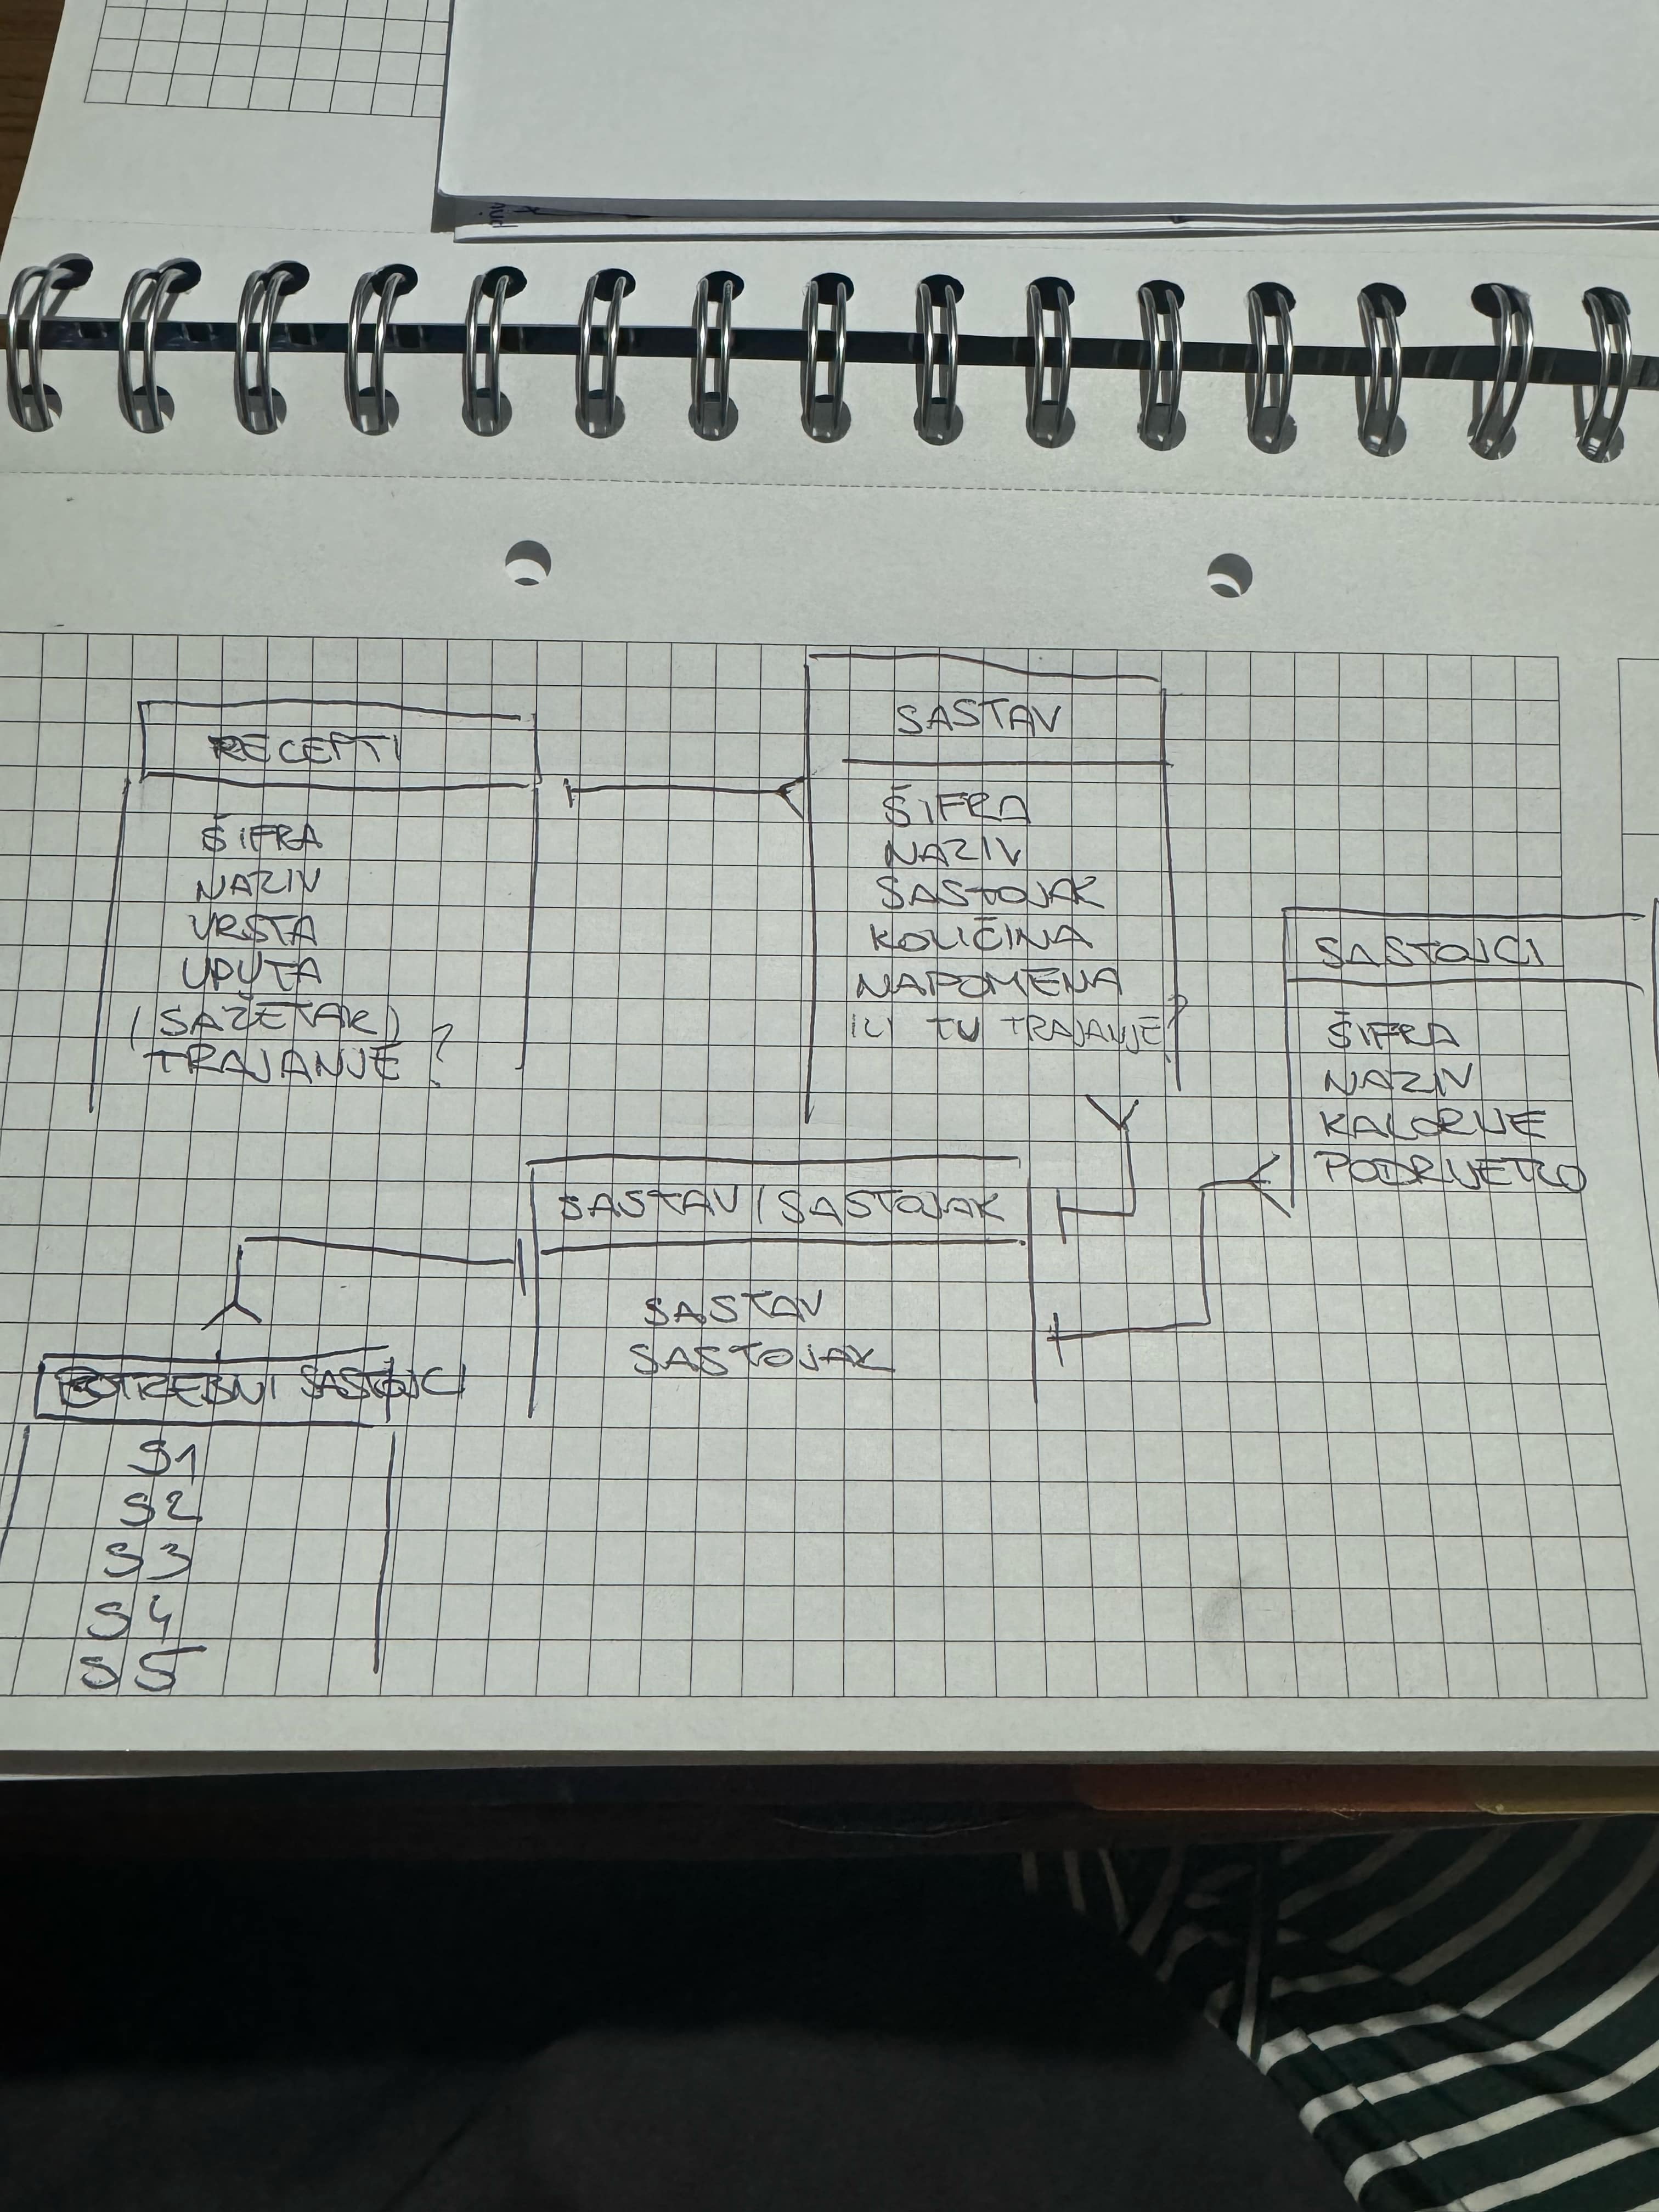 RECEPTI
ŠIFRA
NAZIV
VRSTA
UPUTA
(SAŽETAK)
TRAJANJE ?
SASTAV
ŠIFRA
NAZIV
SASTOJAK
KOLIČINA
NAPOMENA
ILI TU TRAJANJE?
SASTOJCI
ŠIFRA
NAZIV
KALORIJE
PODRIJETLO
SASTAV / SASTOJAK
SASTAV
SASTOJAK
POTREBNI SASTOJCI
S1
S2
S3
S4
S5